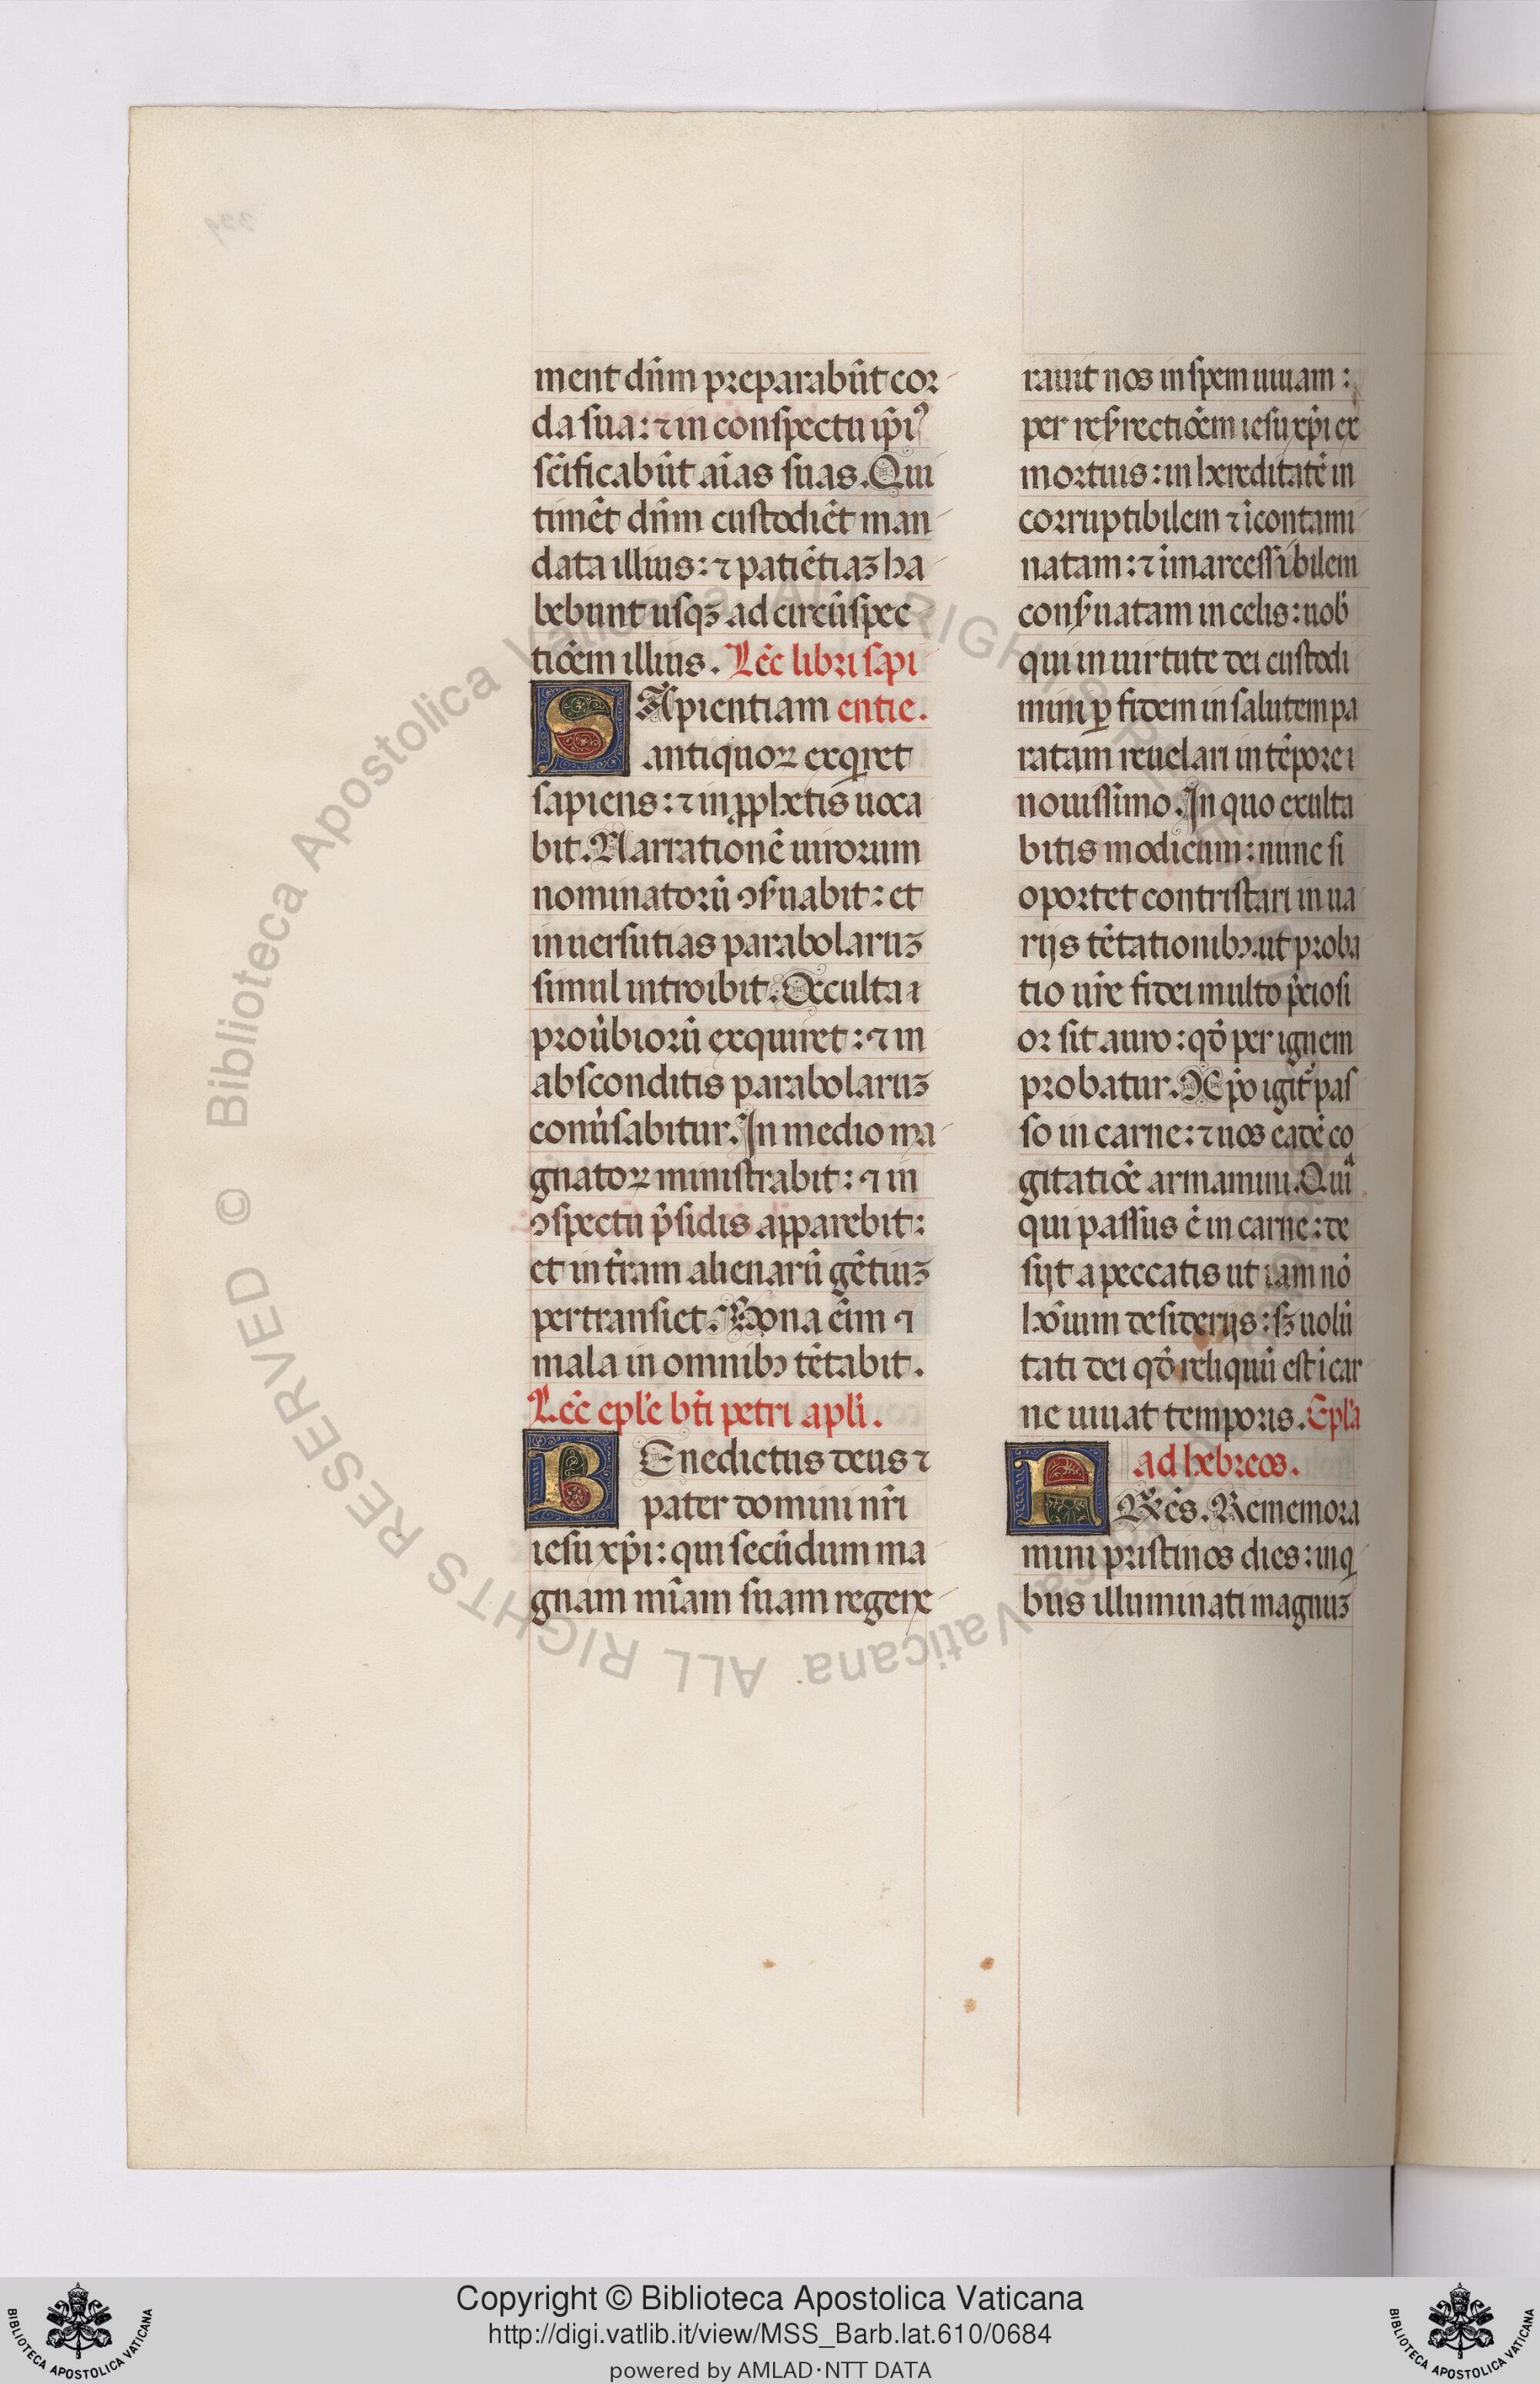 ment dn̄m preparabūt cor
da sua: ⁊ in conspectu ip̄iꝰ
sc̄ificabūt aīas suas. Qui
timēt dn̄m custodiēt man
data illius: ⁊ patiētiaꝫ ha
bebunt usqꝫ ad circūspec
tiōem illius. Lēc libri sapi
SApientiam entie.
antiquoꝝ exqͥret
sapiens: ⁊ in ꝓphetis uoca
bit. Narrationē uirorum
nominatorū ꝯẜuabit: et
in uersutias parabolaruꝫ
simul introibit. Occulta
prou̾biorū exquiret: ⁊ in
absconditis parabolaruꝫ
conu̾sabitur. In medio ma
gnatoꝝ ministrabit: ⁊ in
ꝯspectu p̄sidis apparebit:
et in tr̄am alienarū gētiuꝫ
pertransiet. Bona eīm ⁊
mala in omnibꝫ tētabit.
Lēc epl̄e bt̄i petri apl̄i.
BEnedictus deus ⁊
pater domini nr̄i
iesu xp̄i: qui secūdum ma
gnam mīam suam regene
rauit nos in spem uiuam:
per resrrectiōem iesu xp̄i ex
mortuis: in hereditatē in
corruptibilem ⁊ īcontami
natam: ⁊ īmarcessibilem
conẜuatam in celis: uob̄
qui in uirtute dei custodi
mini ꝑ fidem in salutem pa
ratam reuelari in tēpore
nouissimo. In quo exulta
bitis modicum: nunc si
oportet contristari in ua
rijs tētationibꝫ. ut proba
tio ur̄e fidei multo p̄ciosi
or sit auro: qō per ignem
probatur. Xp̄o igit᷑ pas
so in carne: ⁊ uos eadē co
gitatiōe armamini. Quiᵃ
qui passus ē in carne: de
sijt a peccatis ut iam nō
hōium desiderijs: sꝫ uolū
tati dei qō reliquū est ī car
ne uiuat temporis. Epl̄a
ad hebreos.
FRēs. Rememora
mini pristinos dies: in qͥ
bus illuminati magnuꝫ
Copyright © Biblioteca Apostolica Vaticana
http://digi.vatlib.it/view/MSS_Barb.lat.610/0684
powered by AMLAD·NTT DATA
BIBLIOTECA APOSTOLICA VATICANA
BIBLIOTECA APOSTOLICA VATICANA
© Biblioteca Apostolica Vaticana ALL RIGHTS RESERVED